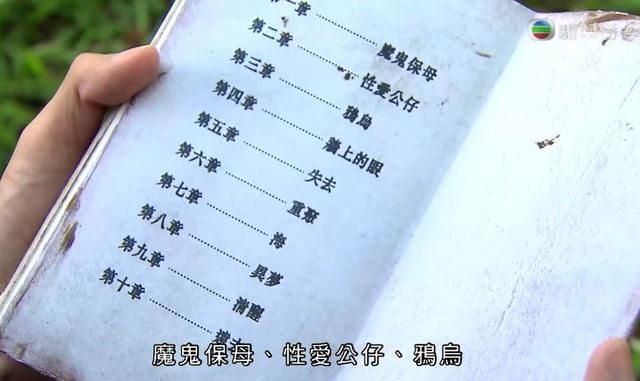 第一章………………魔鬼保母
第二章………………性愛公仔
第三章………………鴉烏
第四章………………牆上的眼
第五章………………失去
第六章………………重聚
第七章………………海
第八章………………異夢
第九章………………清醒
第十章………………
魔鬼保母、性愛公仔、鴉烏